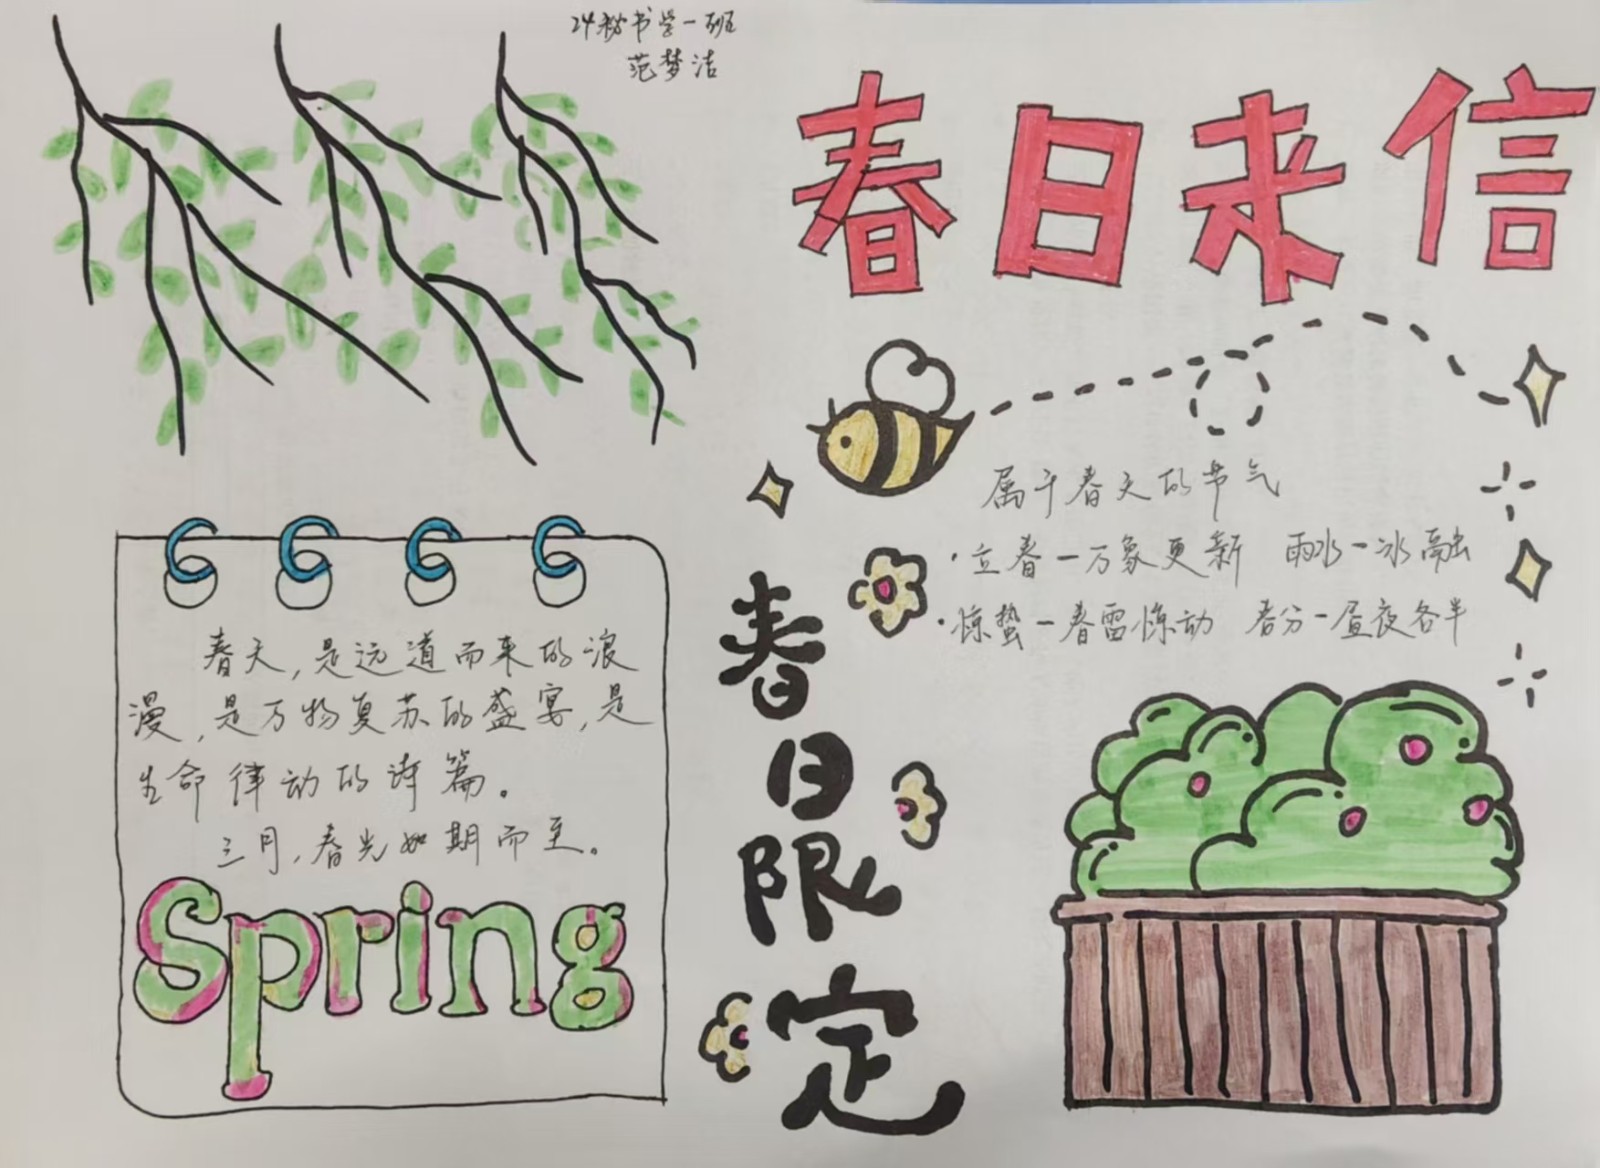 24秘书学一班
范梦洁
春日来信
属于春天的节气
·立春-万象更新 雨水-冰融
·惊蛰-春雷惊动 春分-昼夜各半
春日限定
春天,是远道而来的浪
漫,是万物复苏的盛宴,是
生命律动的诗篇。
三月,春光如期而至。
Spring